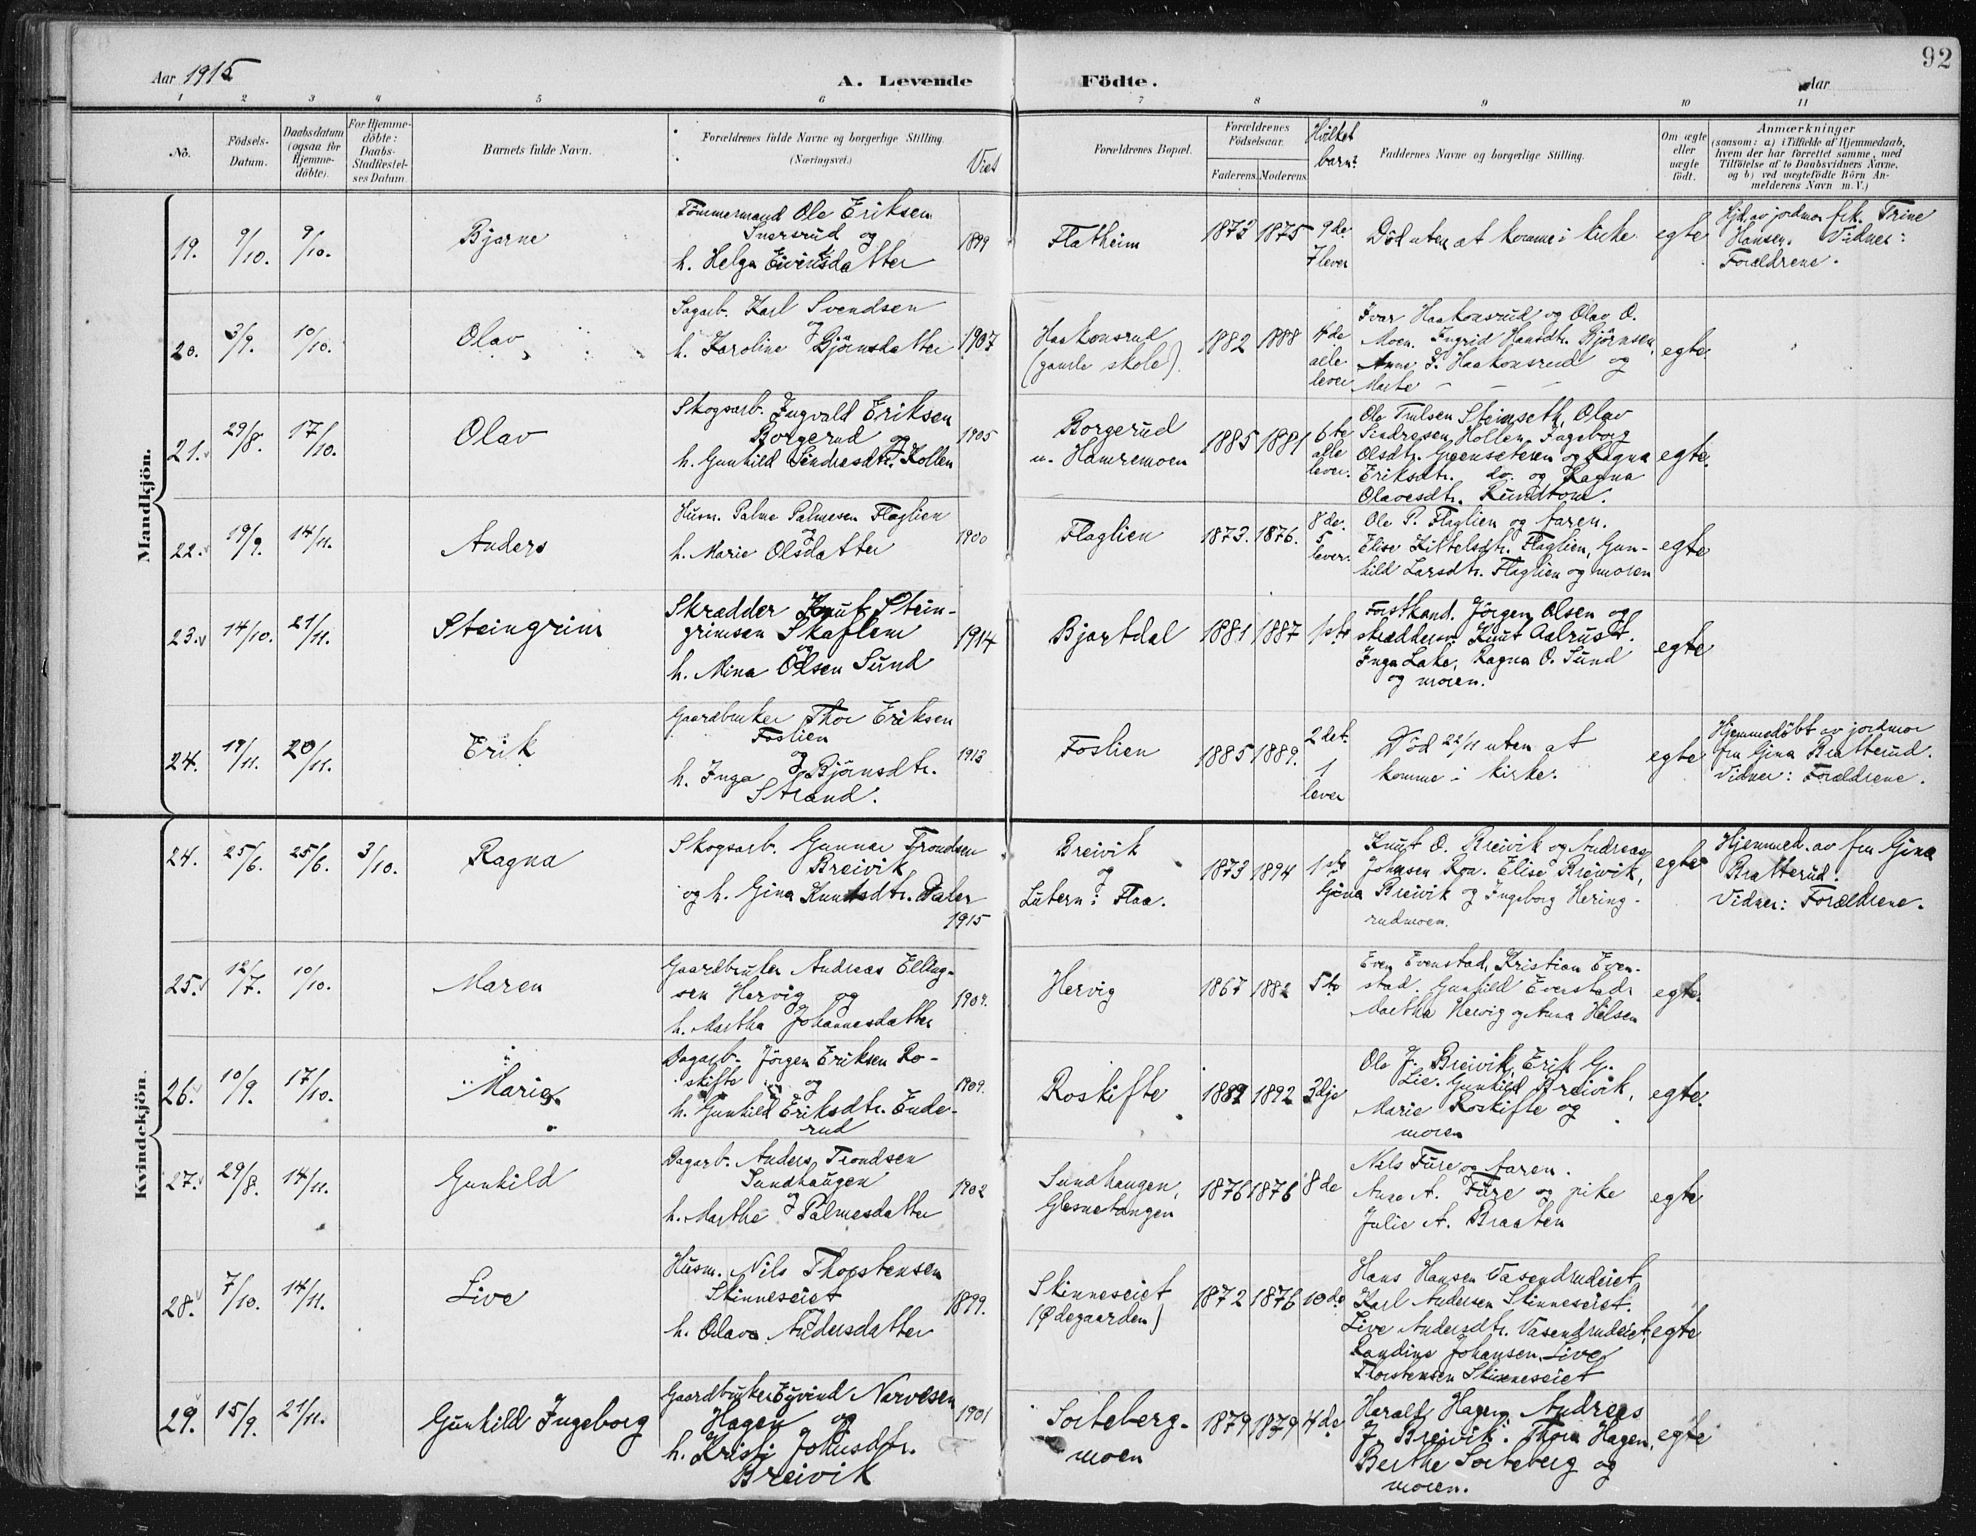 92
Aar 1915
A. Levende Födte.
Aar
1 2 3 4 5 6 7 8 9 10 11
No.
Födsels-Datum.
Daabsdatum (ogsaa for Hjemme-döbte).
For Hjemme-döbte: Daabs-Stadfæstel-ses Datum.
Barnets fulde Navn.
Forældrenes fulde Navne og borgerlige Stilling. (Næringsvei.)
Viet
Forældrenes Bopæl.
Forældrenes Födselsaar.
Faderens. Moderens.
Hvilket barn?
Faddernes Navne og borgerlige Stilling.
Om ægte eller uægte födt.
Anmærkninger
(saasom: a) i Tilfælde af Hjemmedaab, hvem der har forrettet samme, med Tilföielse af to Daabsvidners Navne, og b) ved uægtefödte Börn An-melderens Navn m. V.)
Mandkjön.
19. 9/10. 9/10. Bjarne
Tömmermand Ole Eriksen
Snersrud og
h. Helga Eivindsdatter
1899 Flatheim 1873 1875 9de 7 lever
Död uten at komme i kirke. egte
Hjd. av jordmor frk. Trine
Hansen. Vidner:
Forældrene.
20. 3/9. 10/10. Olav
Sagarb. Karl Svendsen
og
h. Karoline Björnsdatter
1907 Haakonsrud
(gamle skole).
1882 1888 4de alle lever
Ivar Haakonsrud og Olav O.
Moen. Ingrid Hansdtr. Björnsen,
Anne I. Haakonsrud og
Marte – – –
egte
21. 29/8. 17/10. Olav
Skogsarb. Ingvald Eriksen
Borgerud og
h. Gunhild Sindresdtr. Kollen
1905 Borgerud
u. Hamremoen
1885 1881 6te alle lever.
Ole Trulsen Steinseth, Olav
Sindresen Hollen, Ingeborg
Olsdtr. Grænsæteren og Ragna
Eriksdtr. do. og Ragna
Olavesdtr. Rundtom.
egte.
22. 19/9. 14/11. Anders
Husm. Palme Palmesen Flaglien
og
h. Marie Olsdatter
1900 Flaglien 1873. 1876. 8de. 5 lever.
Ole P. Flaglien og faren.
Elise Kittelsdtr. Flaglien, Gun-
hild Larsdtr. Flaglien og moren
egte
23. 14/10. 21/11. Steingrim
Skrædder Knut Stein-
grimsen Skaflem
og
h. Mina Olsen Sund
1914 Bjartdal 1881 1887 1ste
Forstkand. Jörgen Olsen og
skræddersv. Knut Aalrust.
Inga Lake, Ragna O. Sund
og moren.
egte
24. 19/11. 20/11. Erik
Gaardbruker Thor Eriksen
Foslien
og
h. Inga Björnsdtr.
Strand.
1913 Foslien 1885 1889. 2det. 1 lever
Död 22/11 uten at
komme i kirke.
egte
Hjemmedöbt av jordmor
fru Gina Bratterud.
Vidner: Forældrene.
Kvindekjön.
24. 25/6. 25/6. 3/10. Ragna
Skogsarb. Gunnar Trondsen
Breivik
og h. Gina Knutsdtr. Daler
1915
Breivik
og
Lutern i Flaa.
1873 1894 1ste
Knut O. Breivik og Andreas
Johnsen Roa. Elise Breivik,
Gina Breivik og Ingeborg Hering-
rudmoen.
egte
Hjemmed. av fru Gina
Bratterud.
Vidner: Forældrene.
25. 12/7. 10/10. Maren
Gaardbruker Andreas Elling-
sen Hervig og
h. Martha Johannesdatter
1904. Hervig 1867 1882 5te
Even Evenstad, Kristian Even-
stad. Gunhild Evenstad,
Martha Hervig og Anna Hilsen
egte.
26. 10/9. 17/10. Marie.
Dagarb. Jörgen Eriksen Ro-
skifte og
h. Gunhild Eriksdtr. Ende-
rud
1909. Roskifte 1882 1892 3dje
Ole J. Breivik, Erik G.
Lie. Gunhild Breivik,
Marie Roskifte og
moren
egte.
27. 29/8. 14/11. Gunhild
Dagarb. Anders Trondsen
Sundhaugen
og
h. Marthe Palmesdatter
1902 Sundhaugen,
Glesnetangen
1876 1876 8de
Nils Fure og faren.
Anne A. Fure og pike
Julie A. Braaten
egte
28. 7/10. 14/11. Live
Husm. Nils Thorstensen
Skinneseiet
og
h. Olava Andersdatter
1899. Skinneseiet
(Ødegaarden)
1872 1876 10de
Hans Hansen Vasendrudeiet,
Karl Andersen Skinneseiet.
Live Andersdtr. Vasendrudeiet,
Randine Johansen, Live
Thorstensen Skinneseiet
egte
29. 15/9. 21/11. Gunhild Ingeborg
Gaardbruker Eyvind Narvesen
Hagen og
h. Kristi Johnsdtr.
Breivik
1901 Sorteberg-
moen
1879 1879 4de
Harald Hagen, Andreas
J. Breivik. Thora Hagen,
Berthe Sorteberg og
moren.
egte